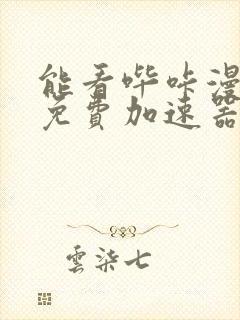 能看哔咔漫
免費加速器
雲柒七